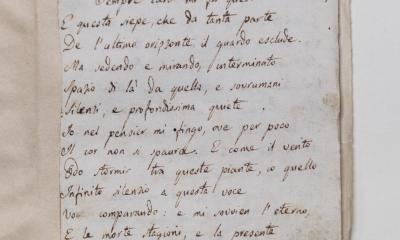 Sempre caro mi fu ques
E questa siepe, che da tanta parte
De l'ultimo orizzonte il guardo esclude.
Ma sedendo e mirando, interminato
Spazio di là da quella, e sovrumani
Silenzi, e profondissima quiete
Io nel pensier mi fingo, ove per poco
Il cor non si spaura. E come il vento
Odo stormir tra queste piante, io quello
Infinito silenzio a questa voce
Vo comparando: e mi sovvien l'eterno,
E le morte stagioni, e la presente